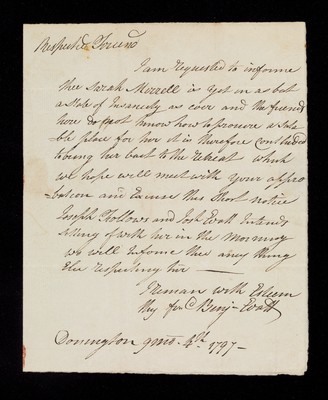 Respected Friend
I am requested to informe
thee Sarah Morrell is yet in as bad
a State of Insanety as ever and the friends
here do not know how to procure a Suta
ble place for her it is therefore concluded
to bring her back to the Retreat which
we hope will meet with your appro
bation and Excuse this Short notice
Joseph and Josh Evatt Intends
Setting of with her in the Morning
we will Informe thee any thing
Else respecting her
I reman with Esteem
thy frd Benj Evatt
Donington 9mo. 4th 1797